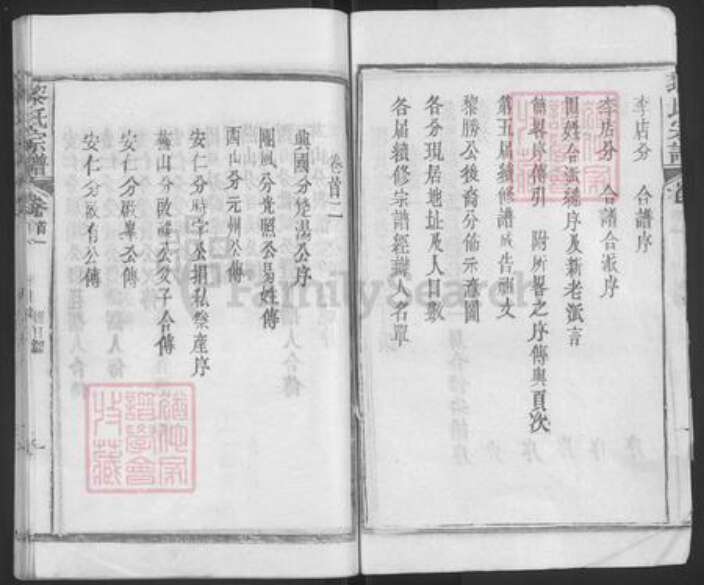 李店分 合譜序
李店分 合譜合派序
同姓合派總序及新老派言
餘畧序傳引 附所畧之序傳與頁次
第五届續修譜成告廟文
黎勝公後裔分佈示意圖
各分現居地址及人口數
各届續修宗譜經辦人名單
卷首二
興國分楚湯公序
團風分光照公易姓傳
酉山分元州公傳
安仁分時字公捐私祭產序
梅山分啟公父子合傳
安仁分啟畢公傳
安仁分啟有公傳
黎氏宗譜
卷首一
FamilySearch